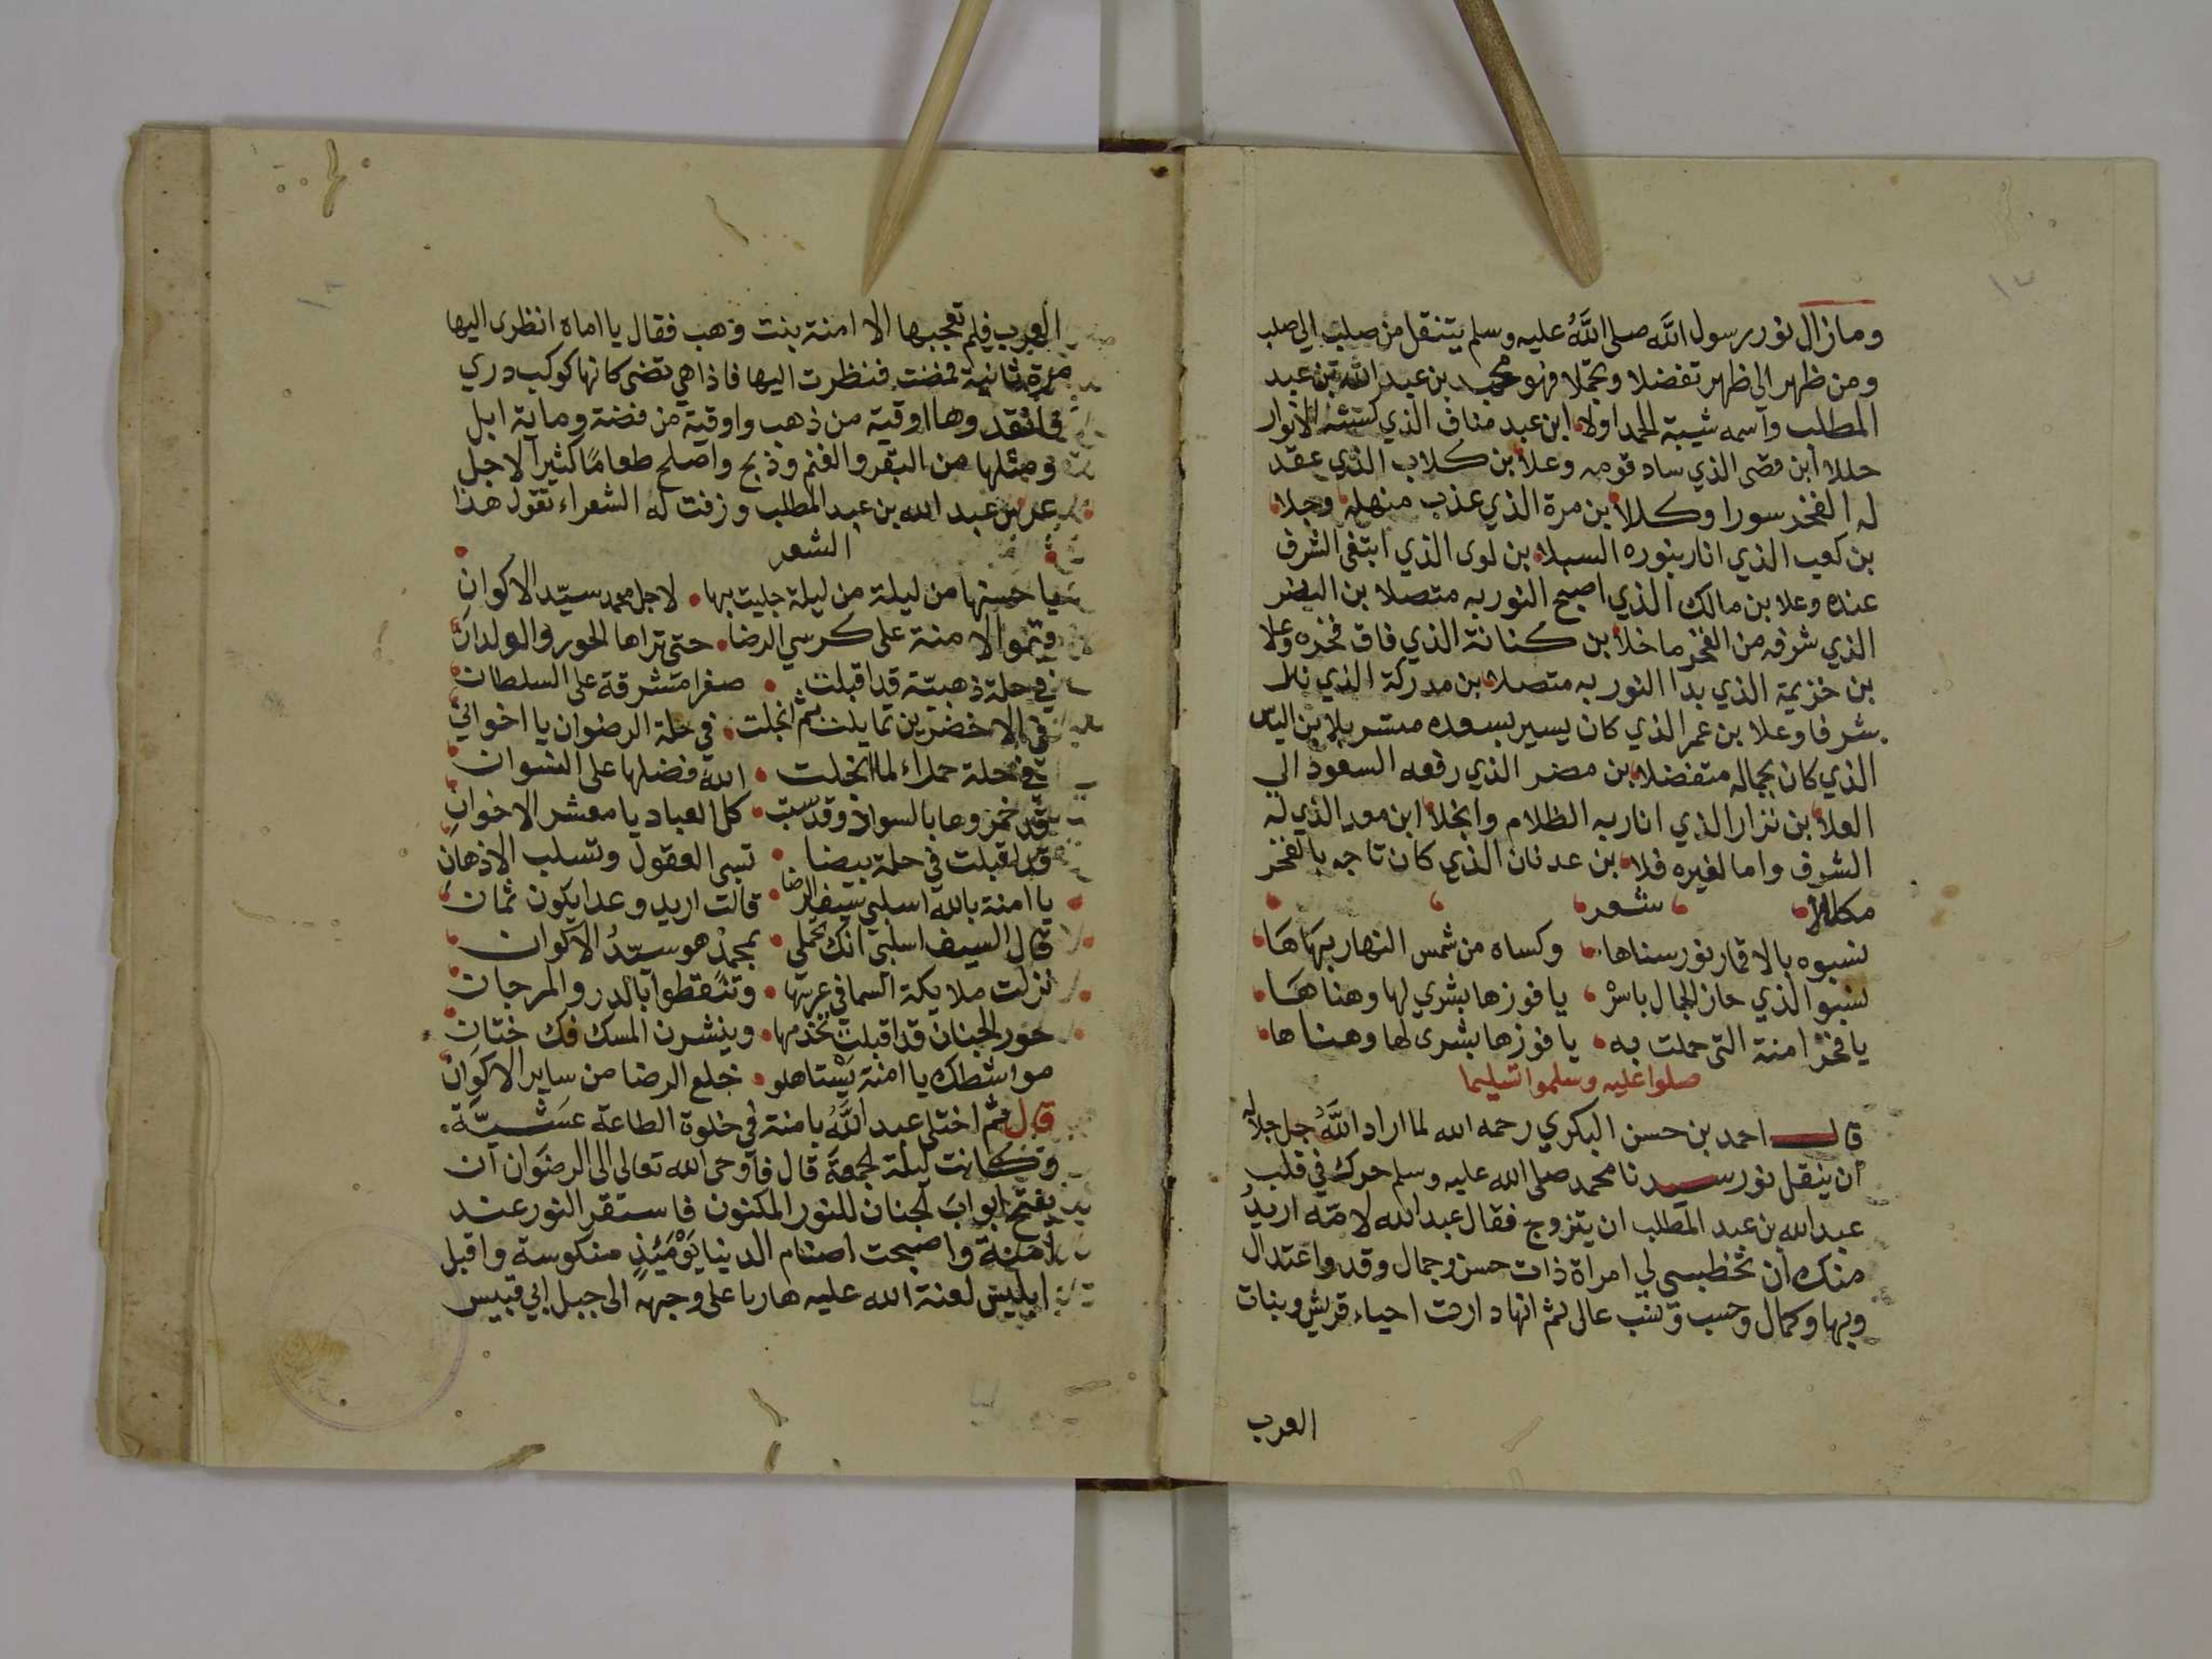 ومازال نور رسول الله صلى اللَّهُ عليه وسلم يتنقل من صلب الى صلب
ومن ظهر الى ظهر تفضلا وتجملا فهو محمد بن عبد الله بن عبد
المطلب واسمه شيبة الحمد اولا ابن عبد مناف الذي الانوار
حللا ابن قصى الذي ساد قومه وعلا بن كلاب الذي عقد
له الفخر سورا وكللا بن مرة الذي عذب منهله وجلا
بن كعب الذي انار بنوره السبلا بن لوى الذي ابتغى الشرف
عنده وعلا بن مالك الذي اصبح النور به متصلا بن النضر
الذي شرفه من الفخر ما خلا بن كنانة الذي فاق فخره وعلا
بن خزيمة الذي بدا النور به متصلا بن مدركة الذي نال
شرفا وعلا بن عمر الذي كان يسير بسعده متسربلا بن الياس
الذي كان بجماله متفضلا بن مضر الذي رفعه السعود الى
العلا بن نزار الذي انار به الظلام وانجلا ابن معد الذي له
الشرف واما لغيره فلا بن عدنان الذي كان تاجه بالفخر
مكللا شعر
نسبوه بالاقمار نور سناها وكساه من شمس النهار بهاها
نسبوا الذي حاز الجمال باسر يا فوزها بشري لها وهناها
يا فخر امنة التى حملت به يا فوزها بشرى لها وهناها
صلوا عليه وسلموا تسليما
قال احمد بن حسن البكري رحمه الله لما اراد اللَّهُ جل جلاله
ان ينقل نور سيدنا محمد صلى الله عليه وسلم حرك في قلب
عبد الله بن عبد المطلب ان يتزوج فقال عبد الله لامّه اريدُ
منك ان تخطبى لي امراة ذات حسن وجمال وقد واعتدال
وبها وكمال وحسب ونسب عالى ثم انها دارت احياء قريش وبنات
العرب
العرب فلم تعجبها الا امنة بنت وهب فقال يا اماه انظرى اليها
مرة ثانية فمضت فنظرت اليها فاذا هي تضى كانها كوكب دري
فانقدوها اوقية من ذهب واوقية من فضة وماية ابل
ومثلها من البقر والغنم وذبح واصلح طعامًا كثيرا لاجل
عرس عبد الله بن عبد المطلب وزفت له الشعراء تقول هذا
الشعر
يا حسنها من ليلة من ليلة جليت بها لاجل محمد سيّد الاكوان
وتموا لامنة على كرسي الرضا حتى تراها الحور والولدان
في حلة ذهبيّة قد اقبلت صفرا مشرقة على السلطان
في الاخضرين تمايلت ثم انجلت في حلة الرضوان يا اخوانى
في حلة حمراء لما انجلت الله فضلها على النسوان
قد خمروها بالسواد وقد سبت كل العباد يا معشر الاخوان
قد اقبلت في حلة بيضا تسبى العقول وتسلب الاذهان
يا امنة بالله اسلبي سيف الرضا قالت اريد وعدا يكون ثمان
قال السيف اسلبي انك تحملى بمحمدْ هو سيّدُ الاكوان
نزلت ملايكة السما في عرسها وتنقطوا بالدر والمرجان
حور الجنان قد اقبلت تخدمها وينشرن المسك فك ختان
مواشطك يا امنة يستاهلو خلع الرضا من ساير الاكوان
قال ثم اختلى عبد اللَّهُ بامنة في خلوة الطاعة عشيّة
وكانت ليلة الجمعة قال فاوحى الله تعالى الى الرضوان ان
يفتح ابوابَ الجنان للنور المكنون فاستقر النور عند
امنة واصبحت اصنام الدنيا يَوْمَئِذٍ منكوسة واقبل
ابليس لعنة الله عليه هاربا على وجهه الى جبل ابي قبيس